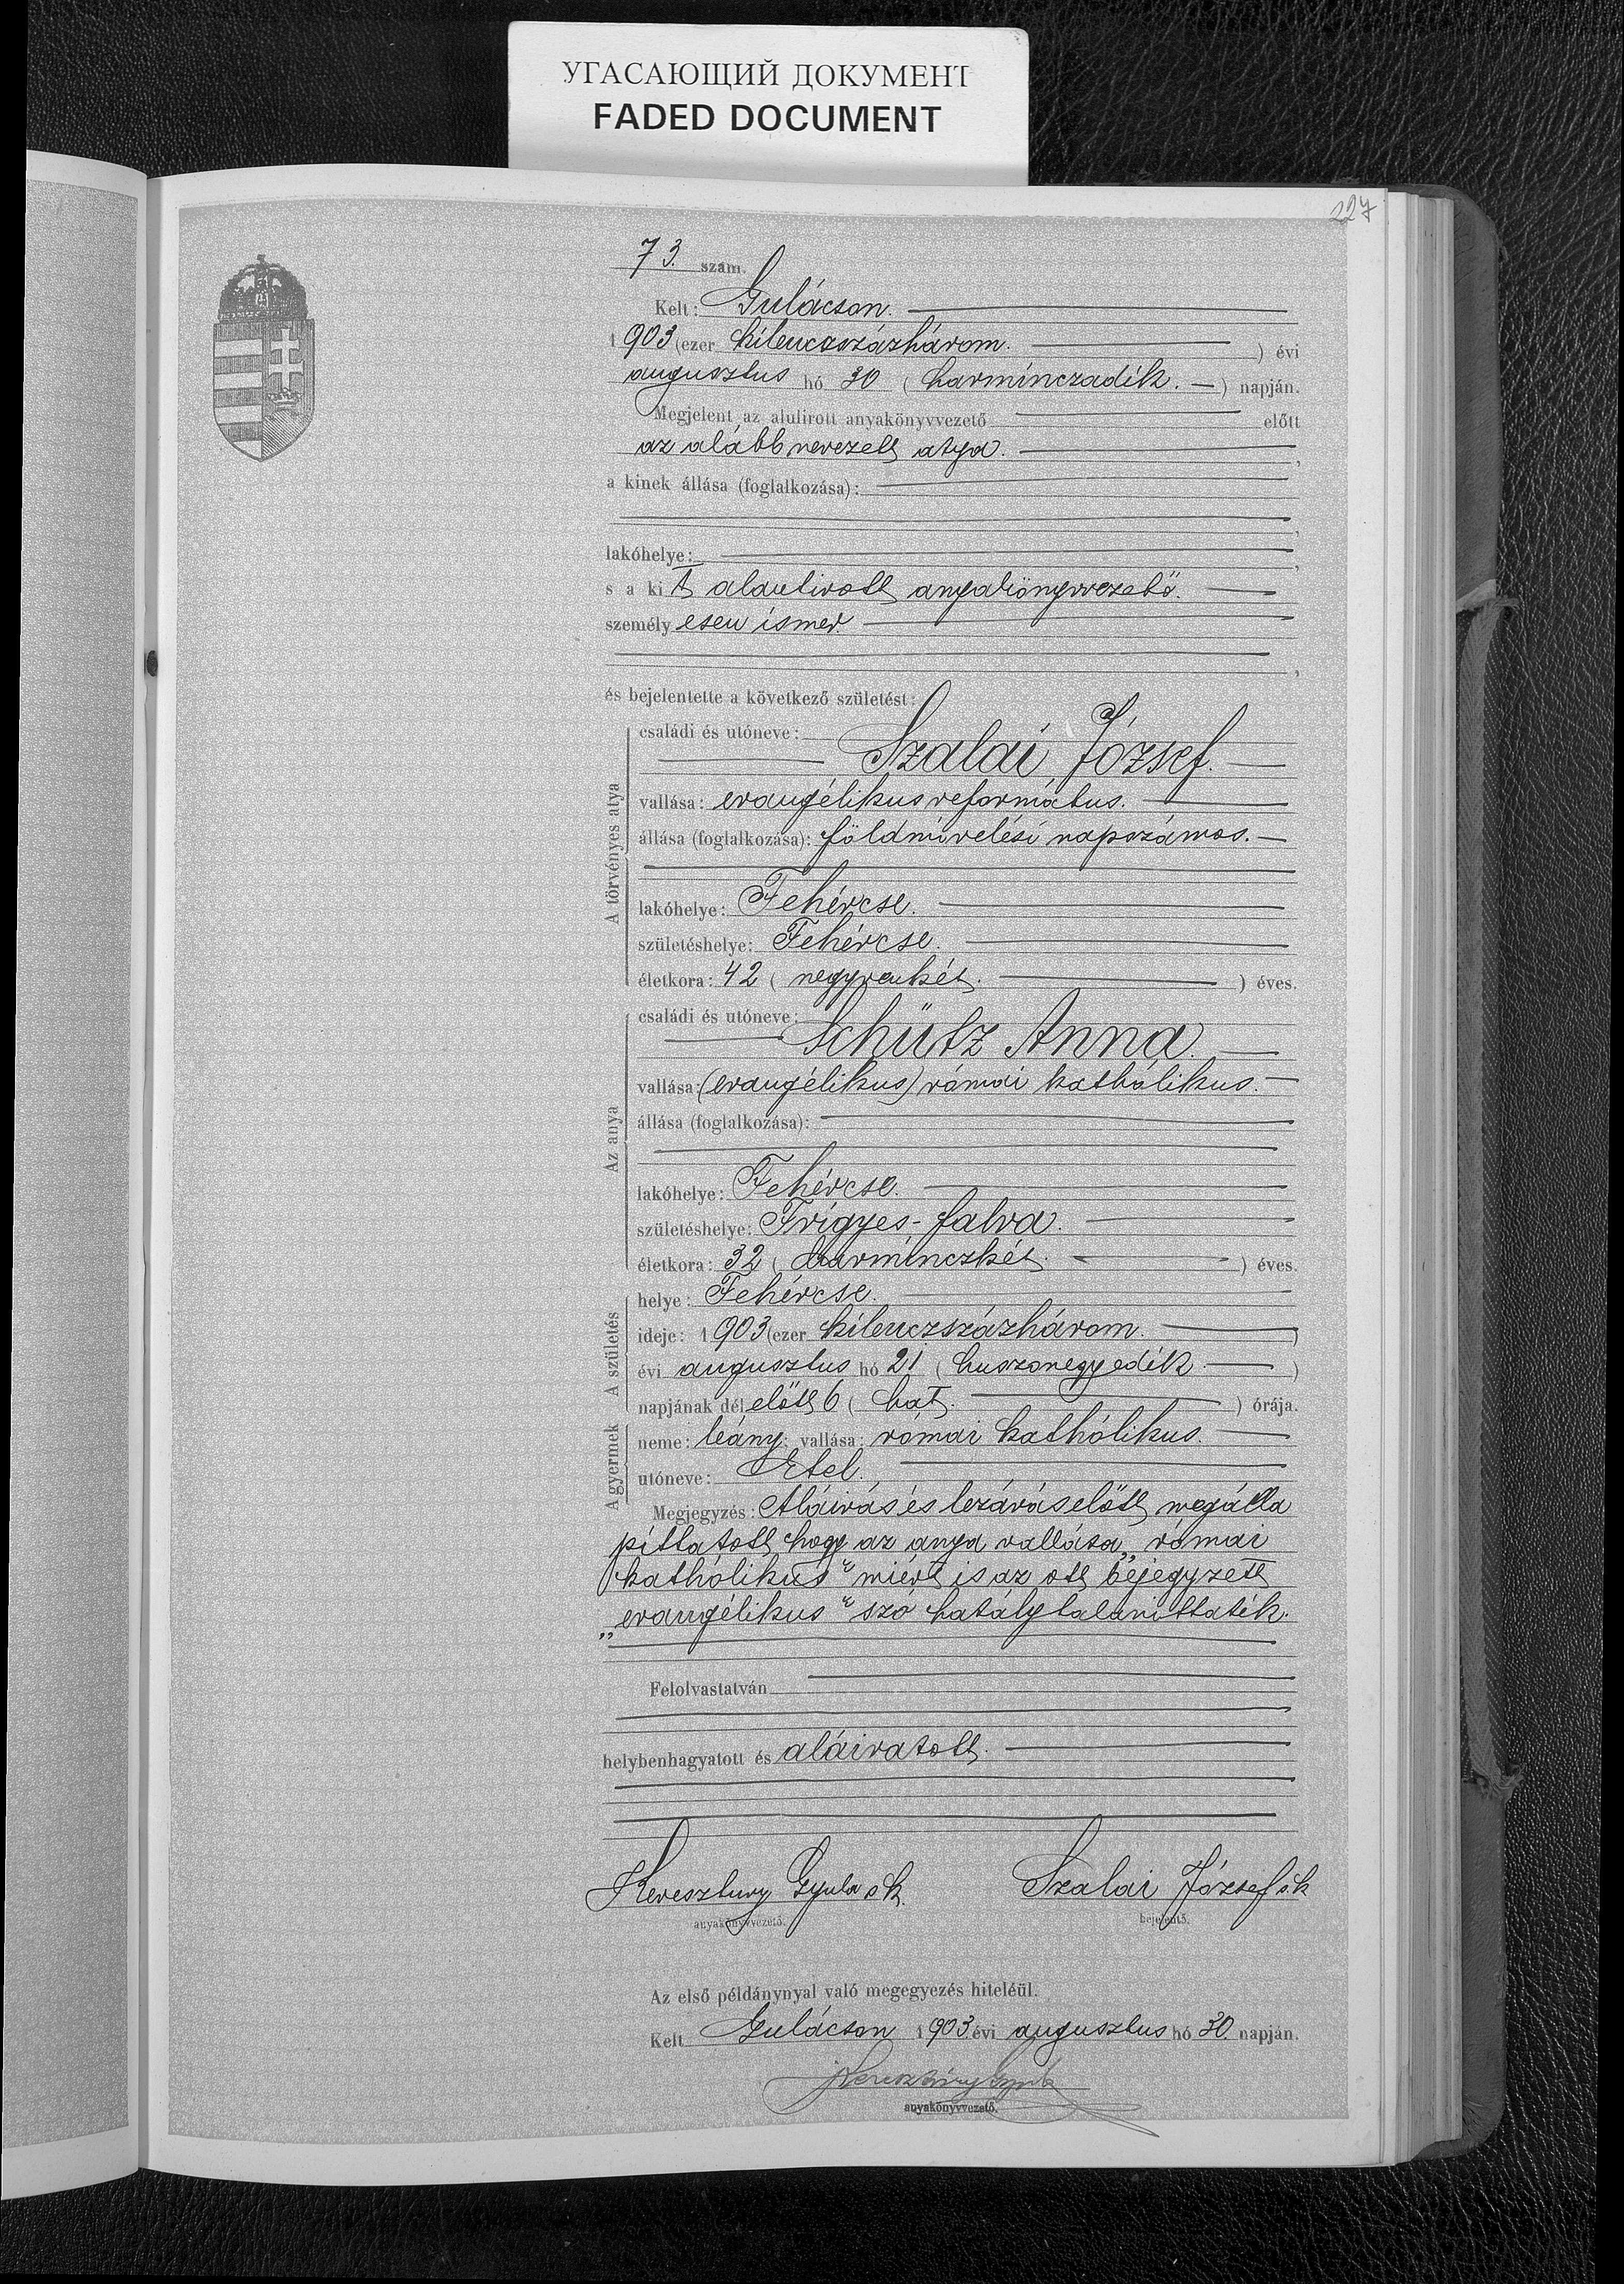 УГАСАЮЩИЙ ДОКУМЕНТ
FADED DOCUMENT
227
73. szám.
Kelt: Gulácson.
1903 (ezer kilenczszázhárom. ) évi
augusztus hó 30 ( harminczadik. ) napján.
Megjelent az alulirott anyakönyvvezető előtt
az alább nevezett atya.
a kinek állása (foglalkozása):
lakóhelye:
s a kit alantirott anyakönyvvezető
személyesen ismer
és bejelentette a következő születést:
A törvényes atya
családi és utóneve:
Szalai József.
vallása: evangélikus református.
állása (foglalkozása): földmivelési napszámos.
lakóhelye: Fehércse.
születéshelye: Fehércse.
életkora: 42 ( negyvenkét. ) éves.
Az anya
családi és utóneve:
Schütz Anna.
vallása: (evangélikus) római kathólikus.
állása (foglalkozása):
lakóhelye: Fehércse.
születéshelye: Frigyes-falva.
életkora: 32 ( harminczkét. ) éves.
A születés
helye: Fehércse.
ideje: 1903 (ezer kilenczszázhárom. )
évi augusztus hó 21 ( huszonegyedik )
napjának délelőtt 6 ( hat. ) órája.
A gyermek
neme: leány; vallása: római kathólikus.
utóneve: Etel.
Megjegyzés: Aláirás és lezárás előtt megálla
píttatott, hogy az anya vallása „római
kathólikus" miért is az ott bejegyzett
„evangélikus" szó hatálytalaníttatik.
Felolvastatván
helybenhagyatott és aláiratott.
Keresztury Gyula sk. Szalai József s.k
anyakönyvvezető. bejelentő.
Az első példánynyal való megegyezés hiteléül.
Kelt Gulácson 1903. évi augusztus hó 30. napján.
Keresztury Gyula
anyakönyvvezető.